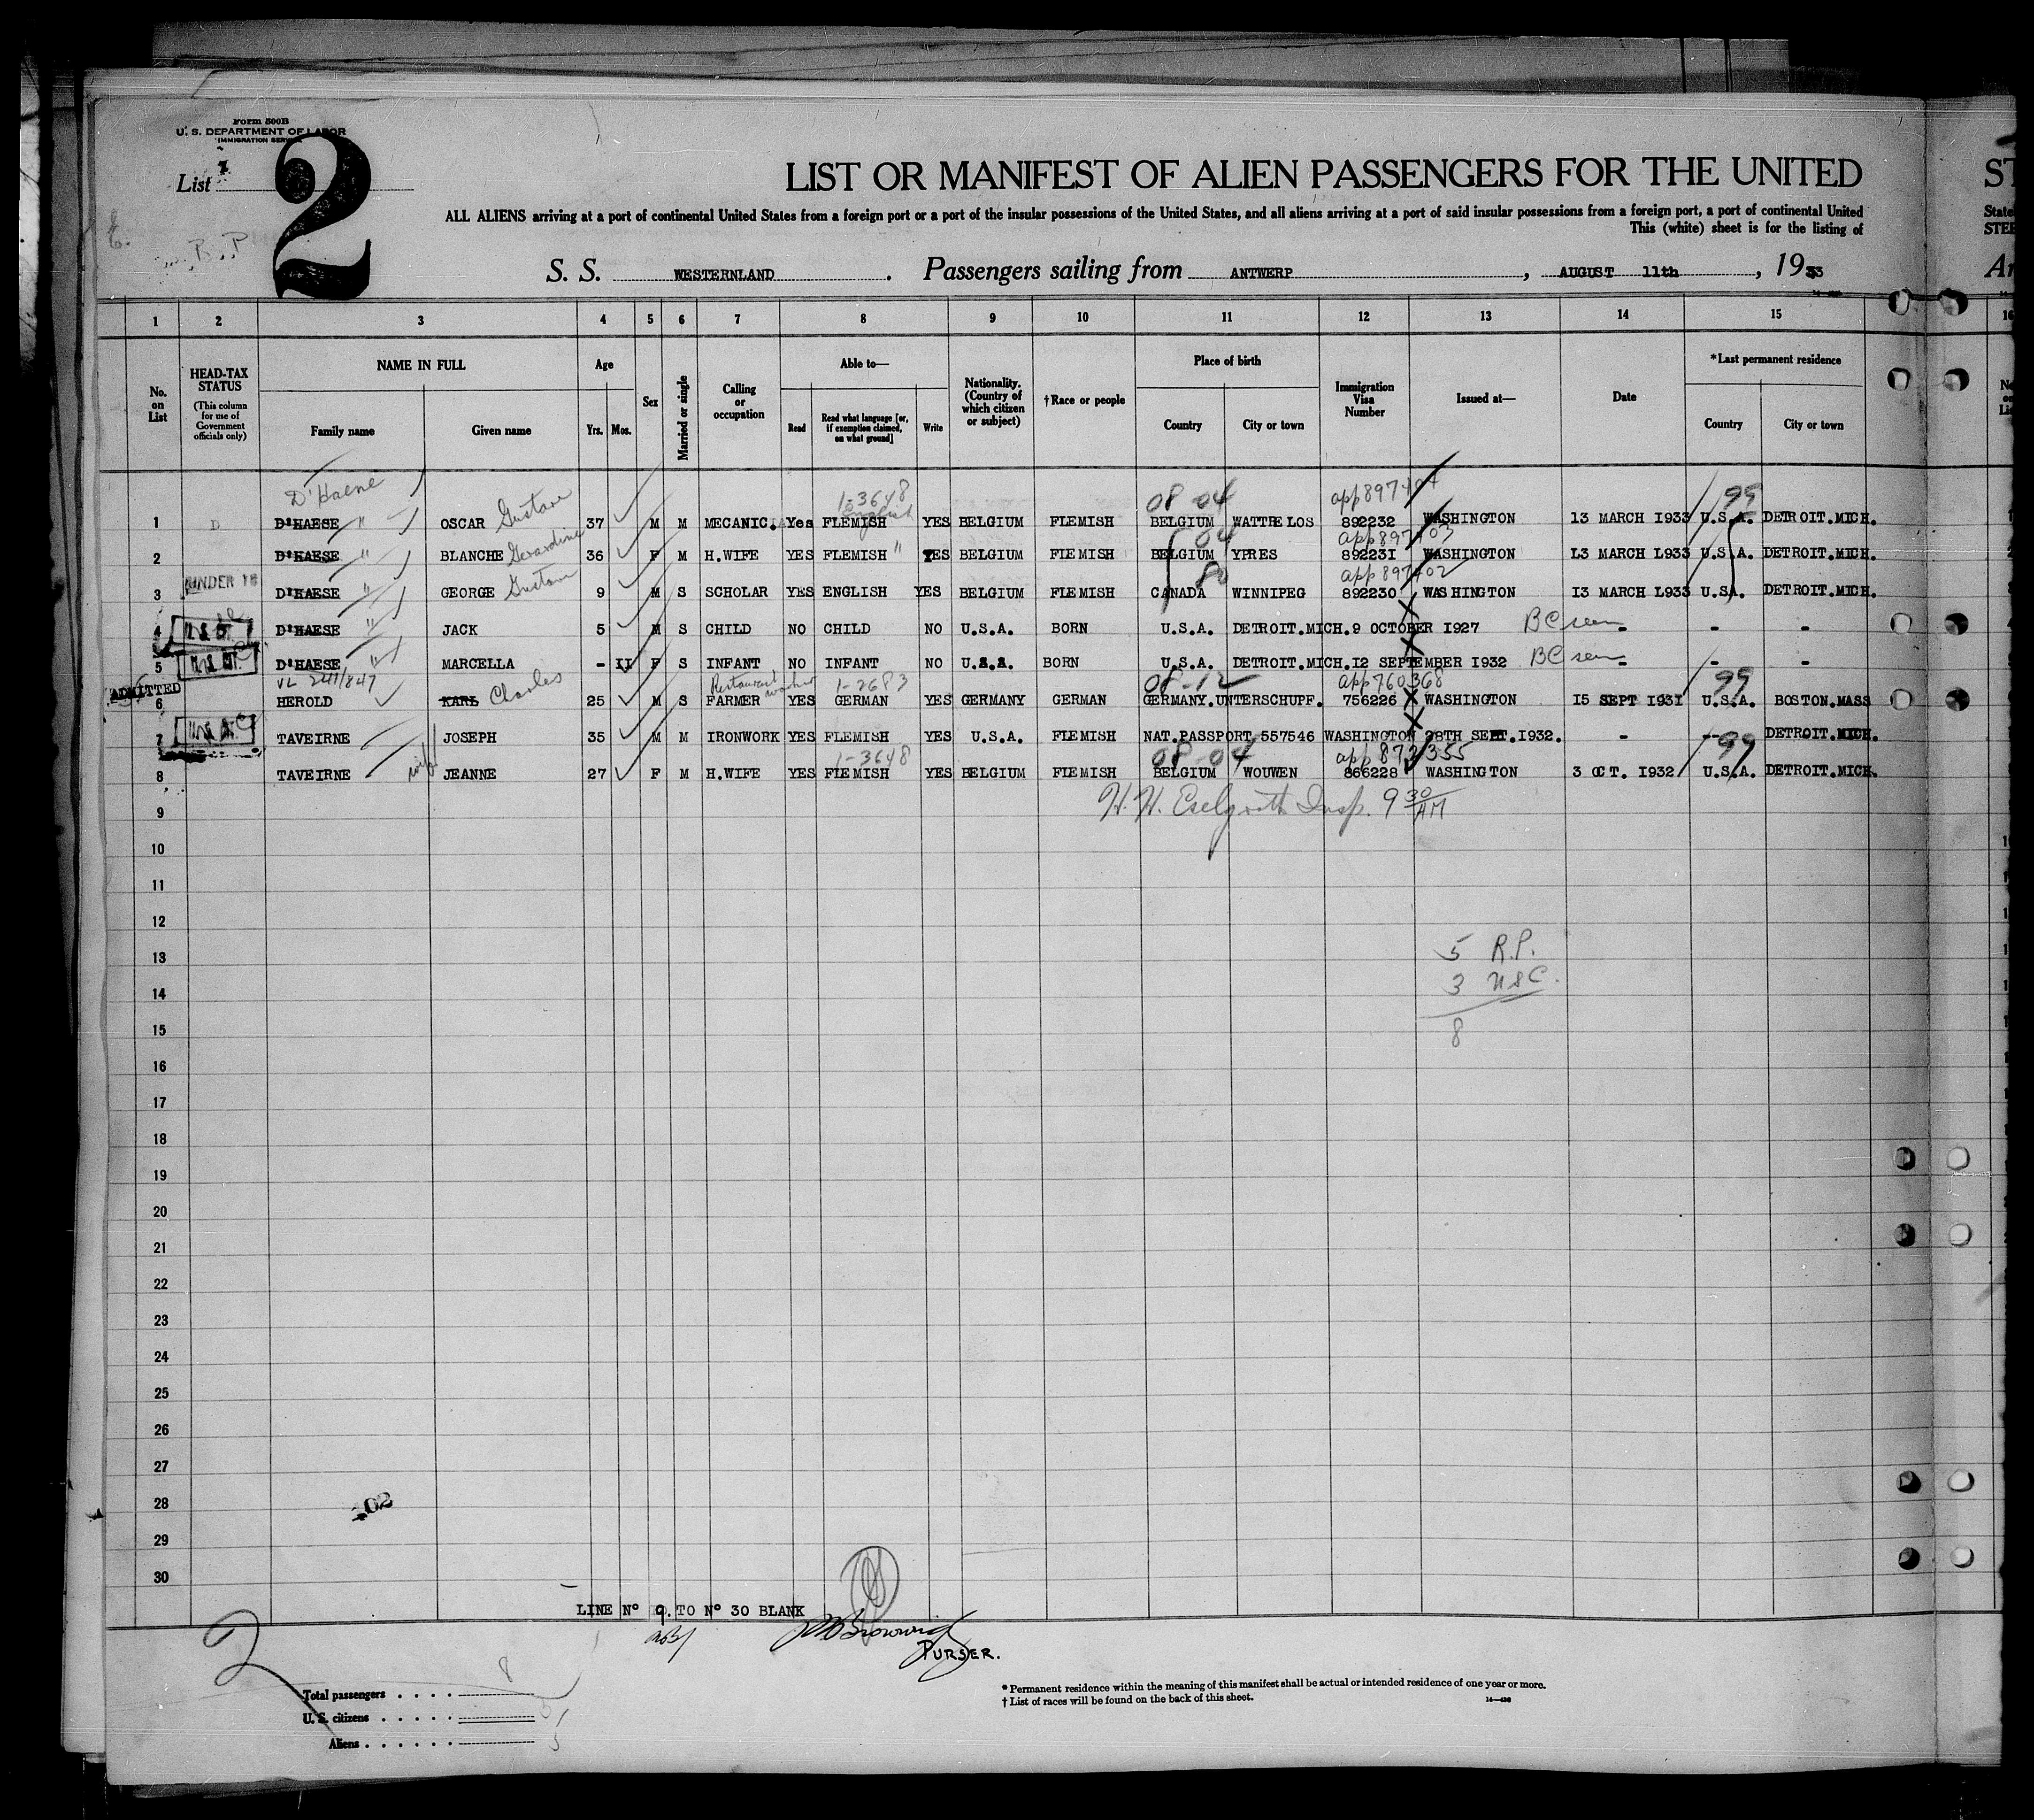 Form 500B
U. S. DEPARTMENT OF LABOR
IMMIGRATION SERVICE
List
2
LIST OR MANIFEST OF ALIEN PASSENGERS FOR THE UNITED
ST
ALL ALIENS arriving at a port of continental United States from a foreign port or a port of the insular possessions of the United States, and all aliens arriving at a port of said insular possessions from a foreign port, a port of continental United
State
This (white) sheet is for the listing of
STEE
S. S. WESTERNLAND . Passengers sailing from ANTWERP , AUGUST 11th , 1933
Ar
1 2 3 4 5 6 7 8 9 10 11 12 13 14 15 16
No. on List
HEAD-TAX STATUS (This column for use of Government officials only)
NAME IN FULL Family name Given name
Age Yrs. Mos.
Sex
Married or single
Calling or occupation
Able to— Read Read what language [or, if exemption claimed, on what ground] Write
Nationality. (Country of which citizen or subject)
†Race or people
Place of birth Country City or town
Immigration Visa Number
Issued at—
Date
*Last permanent residence Country City or town
D'Haene 1-3648 08 04 app 897404 99
1 D D'HAESE " OSCAR Gustave 37 M M MECANIC. Yes FLEMISH English YES BELGIUM FLEMISH BELGIUM WATTRELOS 892232 WASHINGTON 13 MARCH I933 U.S.A. DETROIT.MICH.
04 app 897403
2 D'HAESE " BLANCHE Gerardine 36 F M H.WIFE YES FLEMISH " YES BELGIUM FLEMISH BELGIUM YPRES 89223I WASHINGTON L3 MARCH L933 U.S.A. DETROIT.MICH.
UNDER 16 80 app 897402
3 D'HAESE " GEORGE Gustave 9 M S SCHOLAR YES ENGLISH YES BELGIUM FLEMISH CANADA WINNIPEG 892230 WASHINGTON I3 MARCH L933 U.SA. DETROIT.MICH.
4 D'HAESE " JACK 5 M S CHILD NO CHILD NO U.S.A. BORN U.S.A. DETROIT.MICH. 9 OCTOBER I927 BC seen - - -
5 D'HAESE " MARCELLA - II F S INFANT NO INFANT NO U.S.A. BORN U.S.A. DETROIT.MICH. I2 SEPTEMBER I932 BC seen - - -
ADMITTED VL 241/847 Restaurant worker 1-2683 08-12 app 760368 99
6 HEROLD KARL Charles 25 M S FARMER YES GERMAN YES GERMANY GERMAN GERMANY. UNTERSCHUPF. 756226 WASHINGTON I5 SEPT I93I U.S.A. BOSTON.MASS
7 TAVEIRNE JOSEPH 35 M M IRONWORK YES FLEMISH YES U.S.A. FLEMISH NAT.PASSPORT 557546 WASHINGTON 28TH SEPT.I932. - - DETROIT.MICH.
1-3648 08-04 app 872355 99
8 TAVEIRNE wife JEANNE 27 F M H.WIFE YES FLEMISH YES BELGIUM FLEMISH BELGIUM WOUWEN 866228 WASHINGTON 3 OCT. I932 U.S.A. DETROIT.MICH.
9 Insp. 9 30 AM
10
11
12
13 5 R.P.
14 3 USC.
15 8
16
17
18
19
20
21
22
23
24
25
26
27
28 402
29
30
LINE N° 9. TO N° 30 BLANK
PURSER.
2
Total passengers . . . . 8
U. S. citizens . . . . . 3
Aliens . . . . . . 5
* Permanent residence within the meaning of this manifest shall be actual or intended residence of one year or more.
† List of races will be found on the back of this sheet.